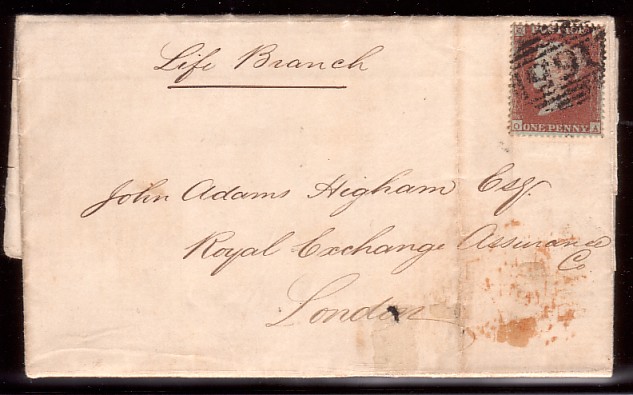 Life Branch
POSTAGE
ONE PENNY
O A
John Adams Higham Esq.
Royal Exchange Assurance
Co
London